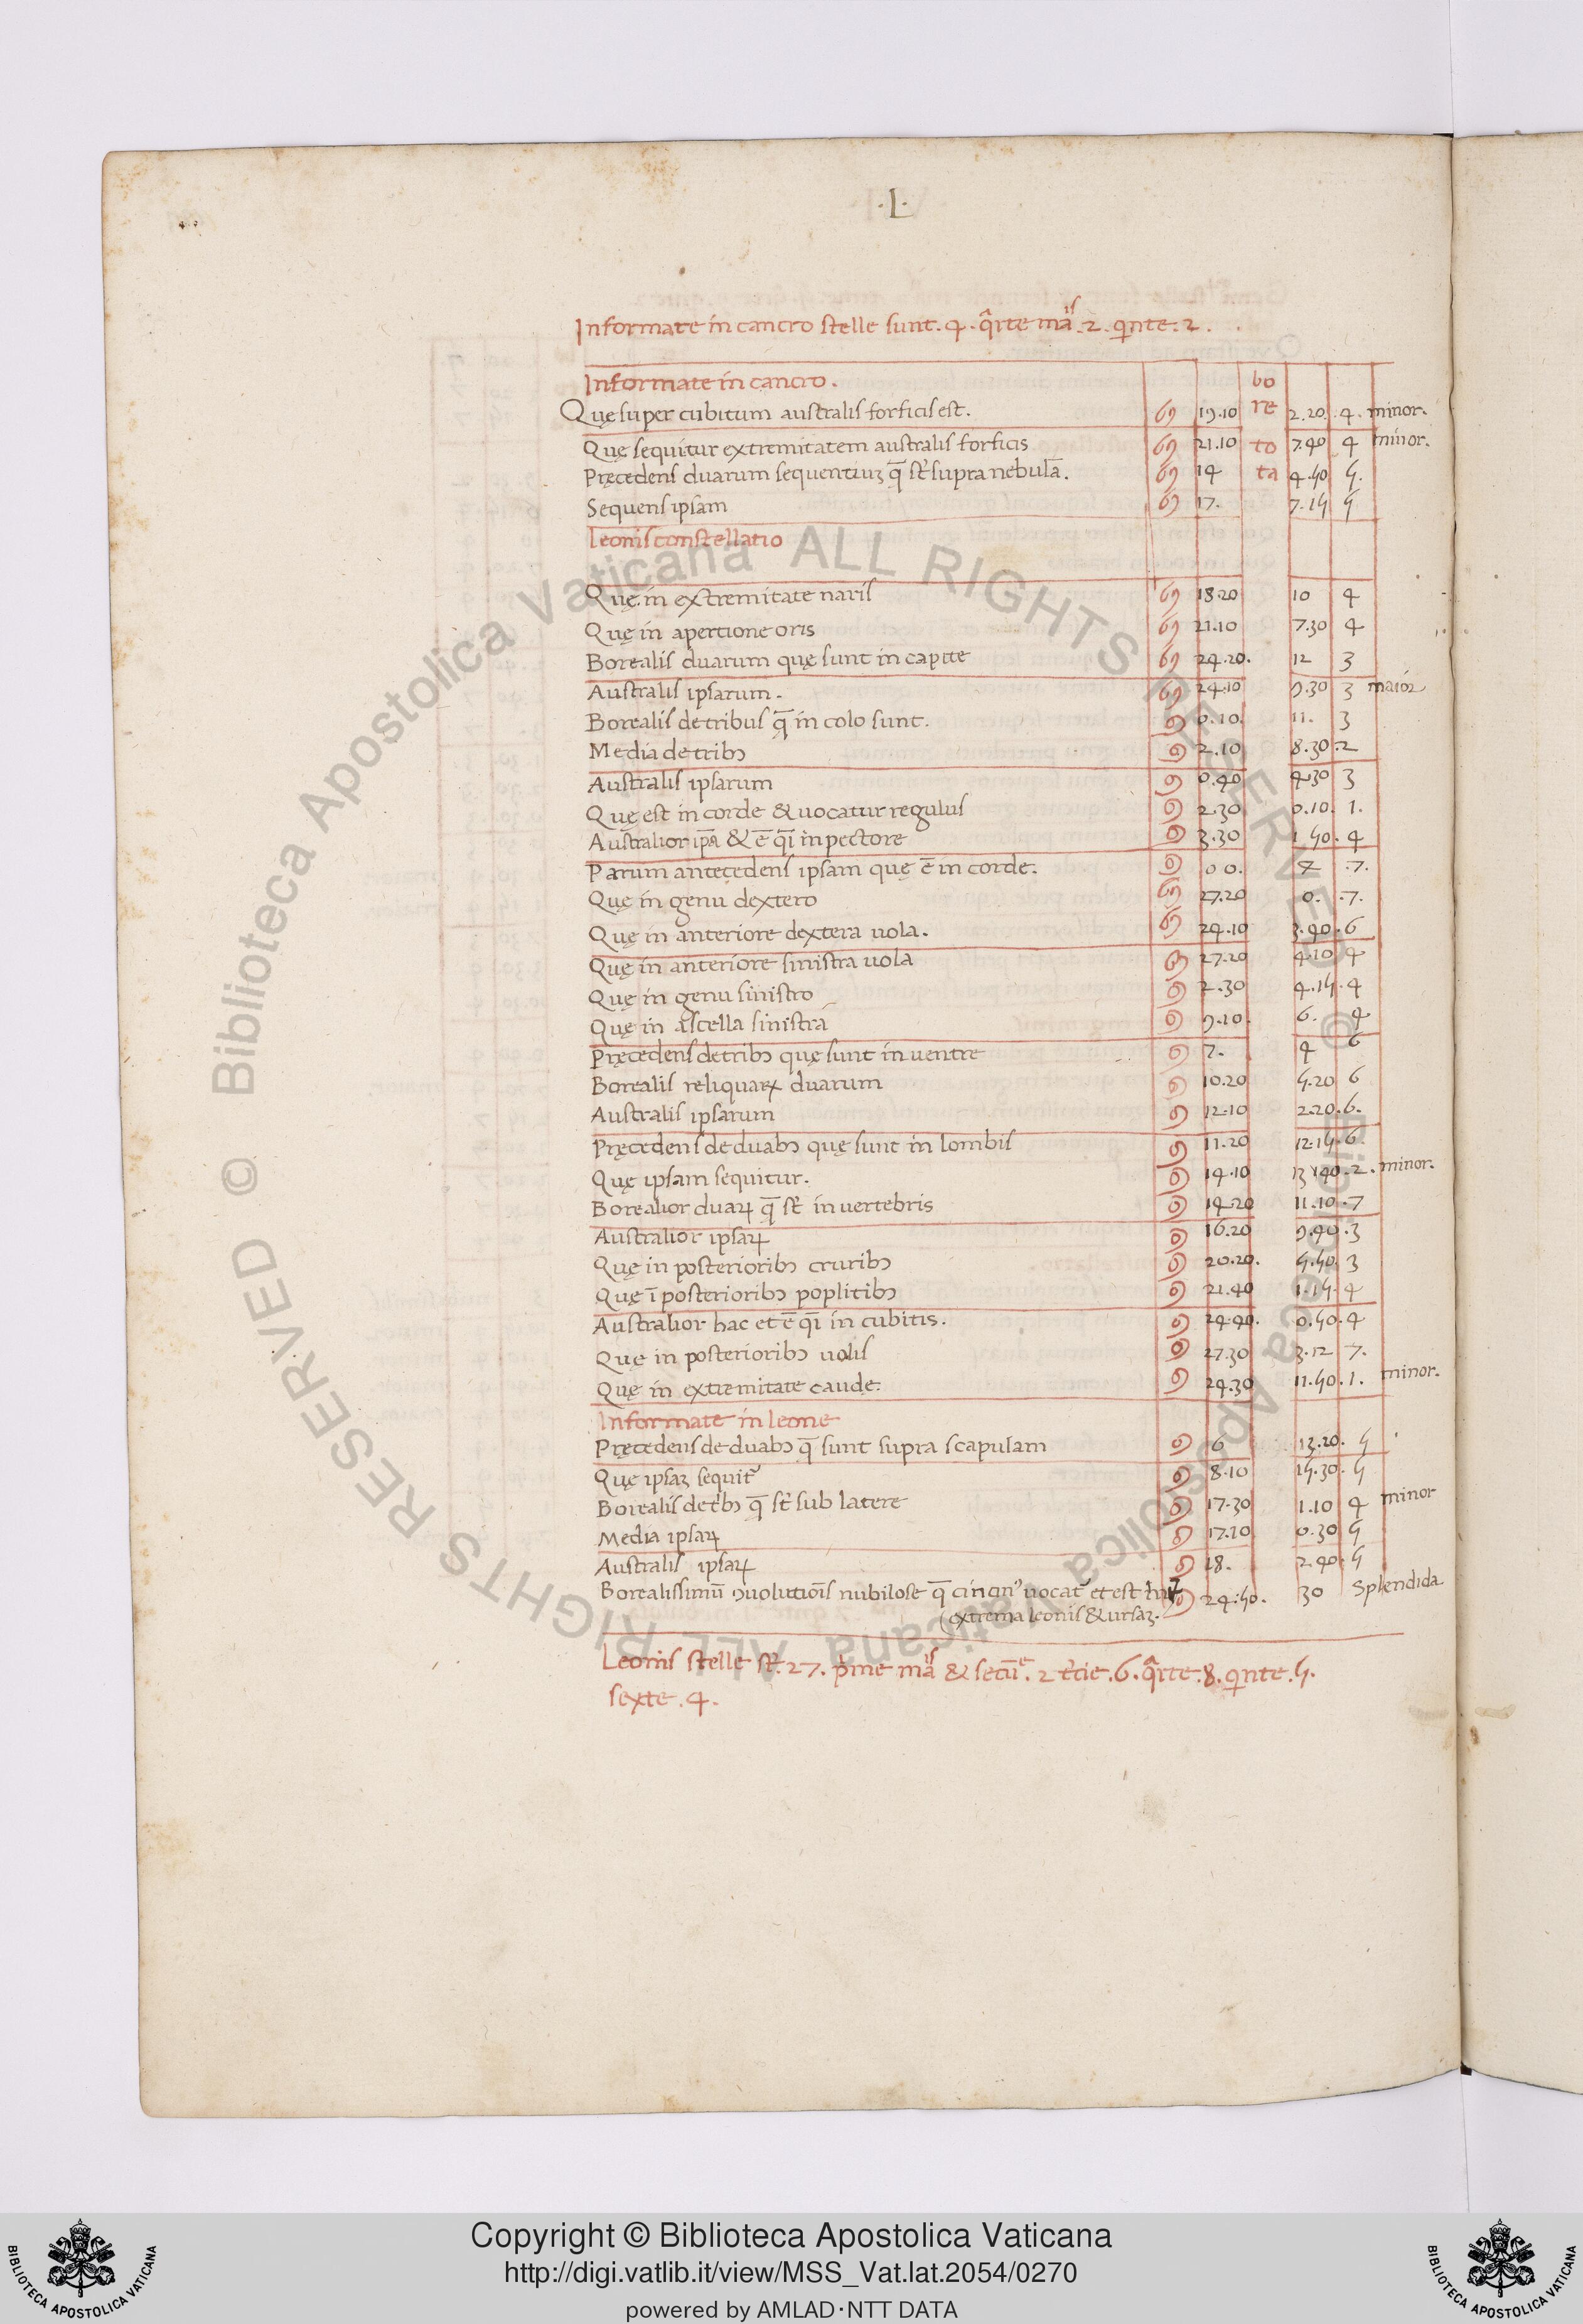 .L.
Informate in cancro stelle sunt. 4. q̃rte mãis. 2. qnte. 2.
Informate in cancro. bo
Quę super cubitum australis forficis est. ♋ 19.10 re 2.20. 4. minor.
Quę sequitur extremitatem australis forficis ♋ 21.10 to 7.40 4 minor.
Pręcedens duarum sequentiuꝫ q̃ st̃ supra nebulã. ♋ 14 ta 4.50 5.
Sequens ipsam ♋ 17. 7.15 5
Leonis constellatio
Quę in extremitate naris ♋ 18.20 10 4
Quę in apertione oris ♋ 21.10 7.30 4
Borealis duarum quę sunt in capite ♋ 24.20. 12 3
Australis ipsarum. ♋ 24.10 9.30 3 maior
Borealis de tribus q̃ in colo sunt. ♌ 0.10. 11. 3
Media de tribꝫ ♌ 2.10 8.30 .2
Australis ipsarum ♌ 0.40 4.30 3
Quę est in corde & uocatur regulus ♌ 2.30 0.10. 1.
Australior ip̃a & ē q̃ ī pectore ♌ 3.30 1.50. 4
Parum antecedens ipsam quę ē in corde. ♌ 0 0. 4 .7.
Quę in genu dextero ♋ 27.20 0. .7.
Quę in anteriore dextera uola. ♋ 24.10 3.40. 6
Quę in anteriore sinistra uola ♋ 27.20 4.10 4
Quę in genu sinistro ♌ 2.30 4.15. 4
Quę in ascella sinistra ♌ 9.10. 6. 4
Pręcedens de tribꝫ quę sunt in uentre ♌ 7. 4 6
Borealis reliquaꝝ duarum ♌ 10.20 5.20 6
Australis ipsarum ♌ 12.10 2.20. 6.
Pręcedens de duabꝫ quę sunt in lombis ♌ 11.20 12.15. 6
Quę ipsam sequitur. ♌ 14.10 13.40. 2. minor.
Borealior duaꝝ q̃ st̃ in uertebris ♌ 14.20 11.10 .7
Australior ipsaꝝ ♌ 16.20 9.40 .3
Quę in posterioribꝫ cruribꝫ ♌ 20.20. 5.50. 3
Quę ī posterioribꝫ poplitibꝫ ♌ 21.40 1.15. 4
Australior hac et ē q̃ in cubitis. ♌ 24.40. 0.50. 4
Quę in posterioribꝫ uolis ♌ 27.30 3.12 7.
Quę in extremitate caude. ♌ 24.30 11.50. 1. minor.
Informate in leone
Pręcedens de duabꝫ q̃ sunt supra scapulam ♌ 6 13.20. 5
Quę ipsaꝫ sequit̃ ♌ 8.10 15.30. 5
Borealis de tribꝫ q̃ st̃ sub latere ♌ 17.30 1.10 4 minor
Media ipsaꝝ ♌ 17.10 0.30 5
Australis ipsaꝝ ♌ 18. 2.40. 5
Borealissimū ꝯuolutiōis nubilose q̃ cincinꝰ uocat̃ et est ♌ 24.50. 30 Splendida
extrema leonis & ursaꝫ.
Leonis stelle st̃. 27. prime mãis & secūe. 2 t̃cie. 6. q̃rte. 8. qnte. 5.
sexte. 4.
© Biblioteca Apostolica Vaticana ALL RIGHTS RESERVED
© Biblioteca Apostolica Vaticana ALL RIGHTS RESERVED
Copyright © Biblioteca Apostolica Vaticana
http://digi.vatlib.it/view/MSS_Vat.lat.2054/0270
powered by AMLAD·NTT DATA
BIBLIOTECA APOSTOLICA VATICANA
BIBLIOTECA APOSTOLICA VATICANA